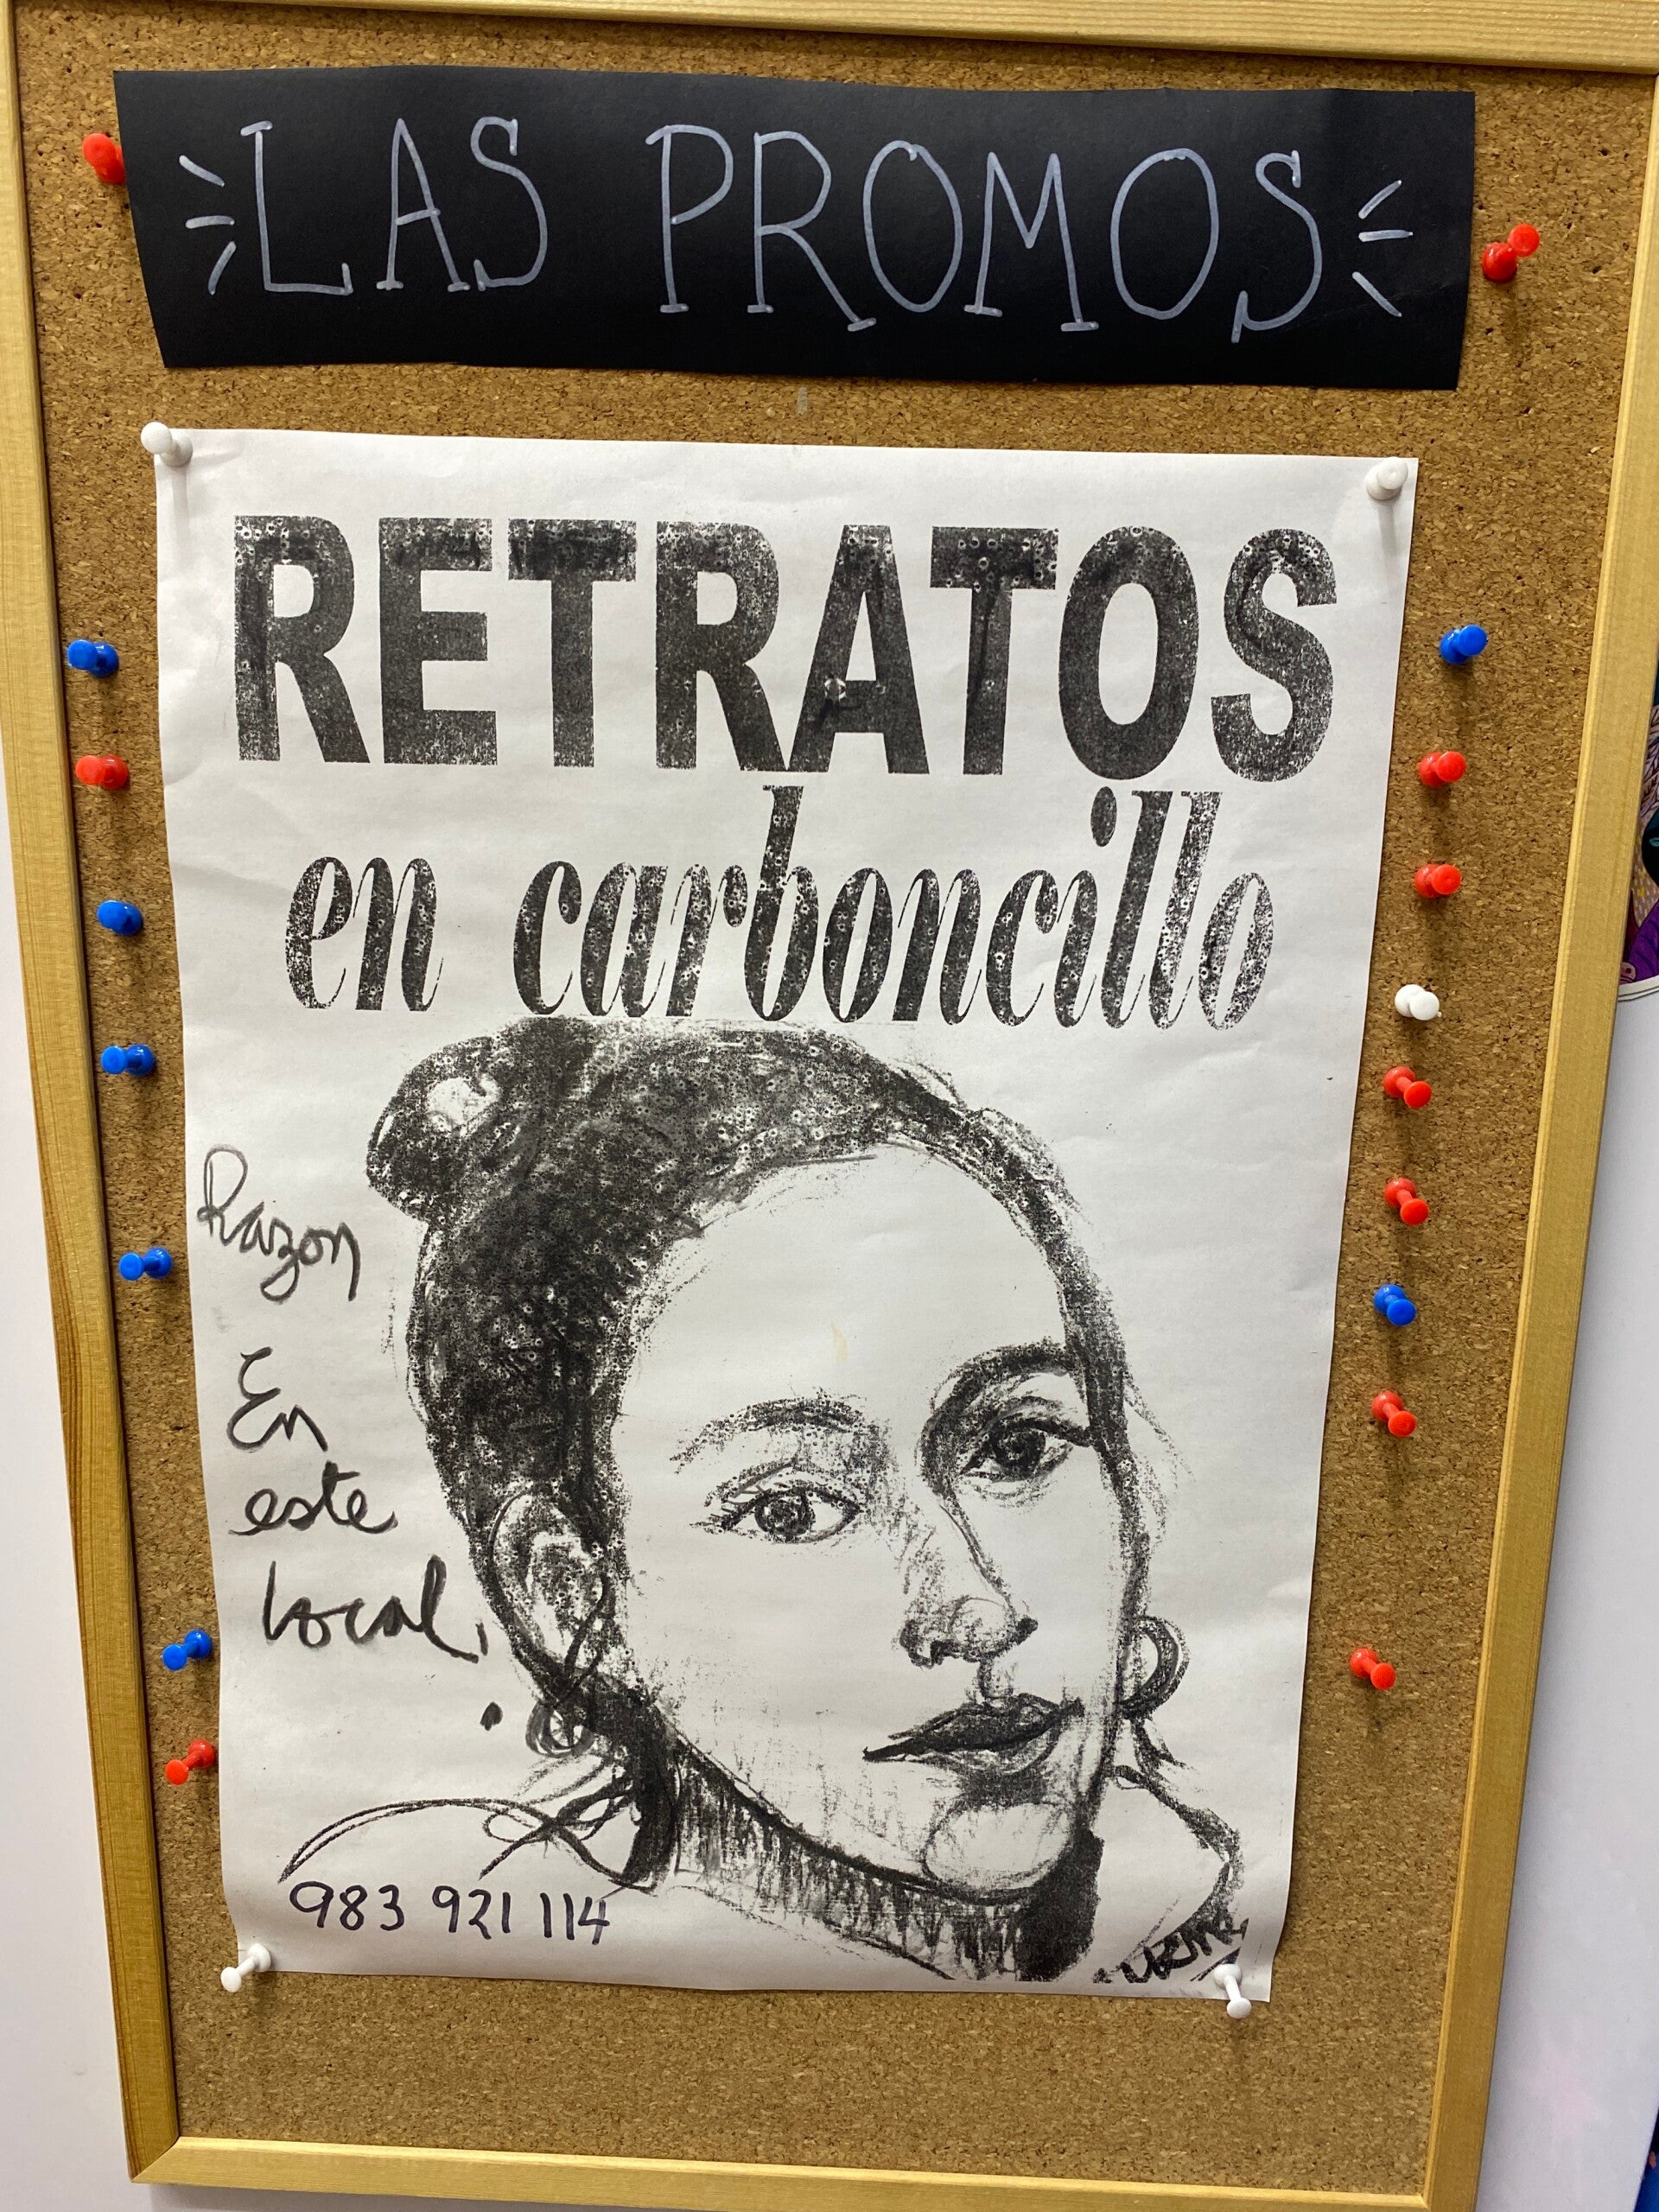 LAS PROMOS
RETRATOS
en carboncillo
Razon
En
este
local.
983 921 114